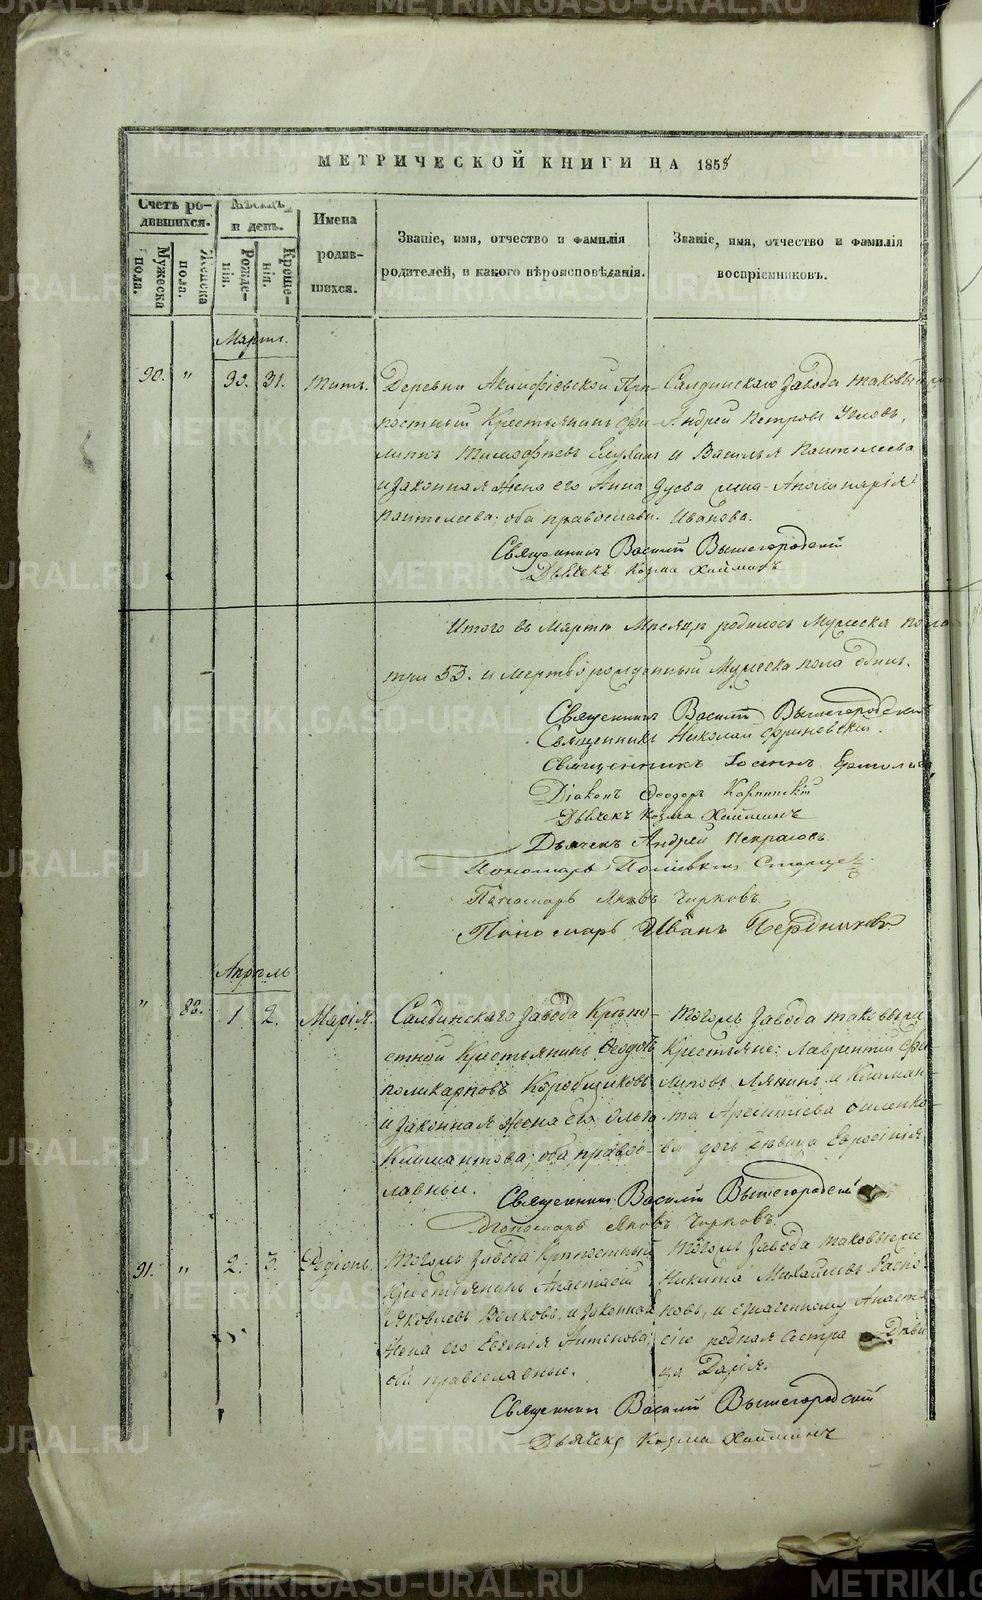 МЕТРИЧЕСКОЙ КНИГИ НА 1858
Счетъ ро-
дившихся.
Мужеска
пола.
Женска
пола.
Мѣсяцъ
и день.
Рожде-
нія.
Креще-
нія.
Имена
родив-
шихся.
Званіе, имя, отчество и фамилія
родителей, и какого вѣроисповѣданія.
Званіе, имя, отчество и фамилія
воспріемниковъ.
Мартъ.
90. " 30. 31. Титъ.
Деревни Акинфіевской Крѣ-
постный Крестьянинъ Фи-
липпъ Тимофѣевъ
и законная жена его Анна
Пантелеева; оба православн.
Салдинскаго завода таковый
Андрей Петровъ
и Василья Пантелеева
жена Аполинарія
Иванова.
Священникъ Василій Вышегородскій
Дьячекъ Козма Хайминъ
Итого въ Мартѣ Месяцѣ родилось Мужеска пола
53. и мертворожденный Мужеска пола одинъ.
Священникъ Василій Вышегородскій
Священникъ Николай
Священникъ Іоаннъ
Діаконъ Феодоръ Карпинскій
Дьячекъ Козма Хайминъ
Дьячекъ Андрей Некрасовъ
Пономарь
Пономарь Яковъ Чирковъ
Пономарь Иванъ Бердниковъ
Апрѣль
" 88. 1. 2. Марія.
Салдинскаго завода Крѣпо-
стной Крестьянинъ Феодотъ
Поликарповъ Коробщиковъ
и законная жена его Ольга
Климантова; оба правос-
лавные.
Тогожъ завода таковыеже
Крестьяне: Лаврентій Фи-
липовъ Лянинъ и Климан-
та Арентіева
дочь дѣвица Евросинія
Священникъ Василій Вышегородскій
Пономарь Яковъ Чирковъ
91. " 2. 3. Родіонъ.
Тогожъ завода Крѣпостный
Крестьянинъ Анастасій
Яковлевъ Волковъ, и законная
жена его Евгенія Антонова;
оба православные.
Тогожъ завода таковыеже
Никита Михайловъ Распо-
повъ, и означенному Анаста-
сію родная сестра Дѣви-
ца Дарія.
Священникъ Василій Вышегородскій
Дьячекъ Козма Хайминъ
METRIKI.GASO-URAL.RU